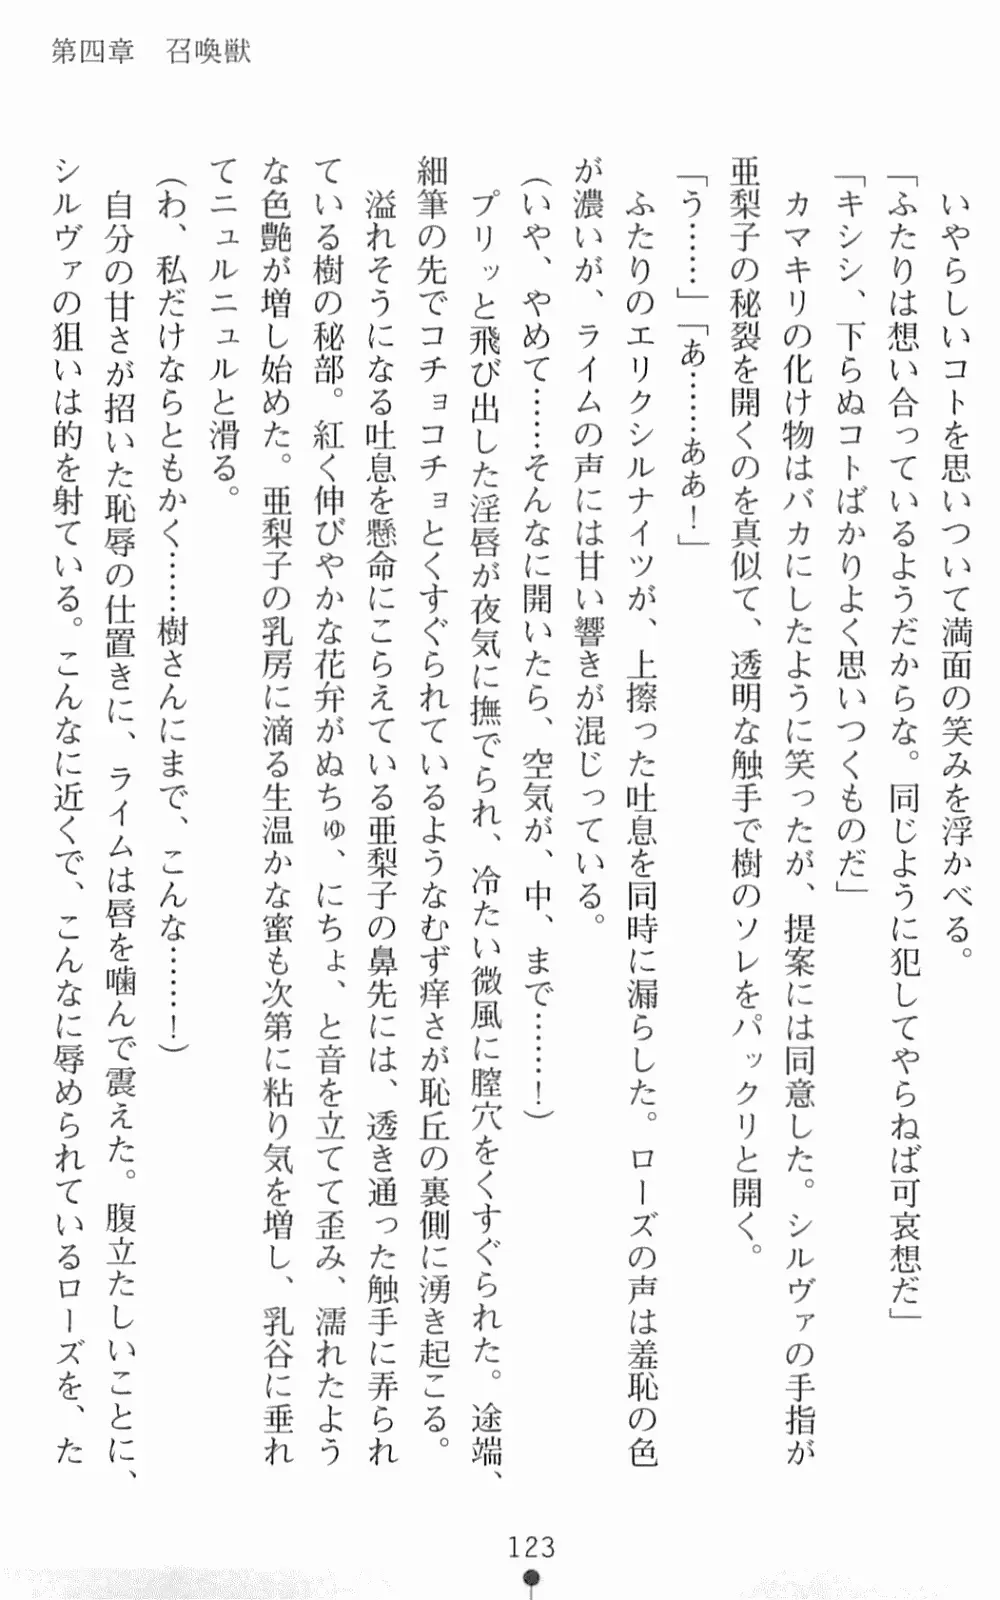 第四章　召喚獣
　いやらしいコトを思いついて満面の笑みを浮かべる。
「ふたりは想い合っているようだからな。同じように犯してやらねば可哀想だ」
「キシシ、下らぬコトばかりよく思いつくものだ」
　カマキリの化け物はバカにしたように笑ったが、提案には同意した。シルヴァの手指が
亜梨子の秘裂を開くのを真似て、透明な触手で樹のソレをパックリと開く。
「う……」「あ……ああ！」
　ふたりのエリクシルナイツが、上擦った吐息を同時に漏らした。ローズの声は羞恥の色
が濃いが、ライムの声には甘い響きが混じっている。
（いや、やめて……そんなに開いたら、空気が、中、まで……！）
　プリッと飛び出した淫唇が夜気に撫でられ、冷たい微風に膣穴をくすぐられた。途端、
細筆の先でコチョコチョとくすぐられているようなむず痒さが恥丘の裏側に湧き起こる。
　溢れそうになる吐息を懸命にこらえている亜梨子の鼻先には、透き通った触手に弄られ
ている樹の秘部。紅く伸びやかな花弁がぬちゅ、にちょ、と音を立てて歪み、濡れたよう
な色艶が増し始めた。亜梨子の乳房に滴る生温かな蜜も次第に粘り気を増し、乳谷に垂れ
てニュルニュルと滑る。
（わ、私だけならともかく……樹さんにまで、こんな……！）
　自分の甘さが招いた恥辱の仕置きに、ライムは唇を噛んで震えた。腹立たしいことに、
シルヴァの狙いは的を射ている。こんなに近くで、こんなに辱められているローズを、た
123